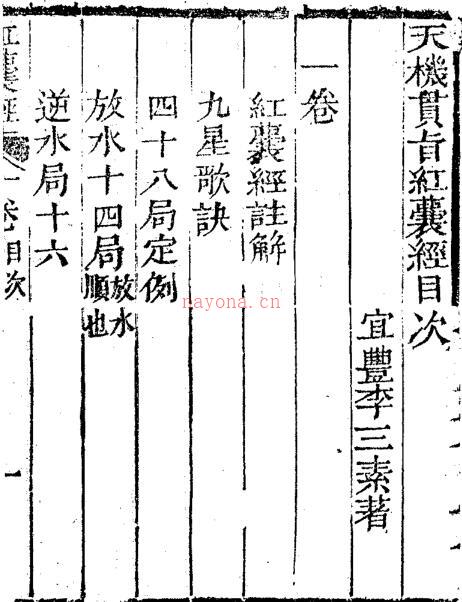 天機貫旨紅囊經目次
宜豐李三素著
一卷
紅囊經註解
九星歌訣
四十八局定例
放水十四局放水順也
逆水局十六
紅囊經 一卷目次 一
nayona.cn